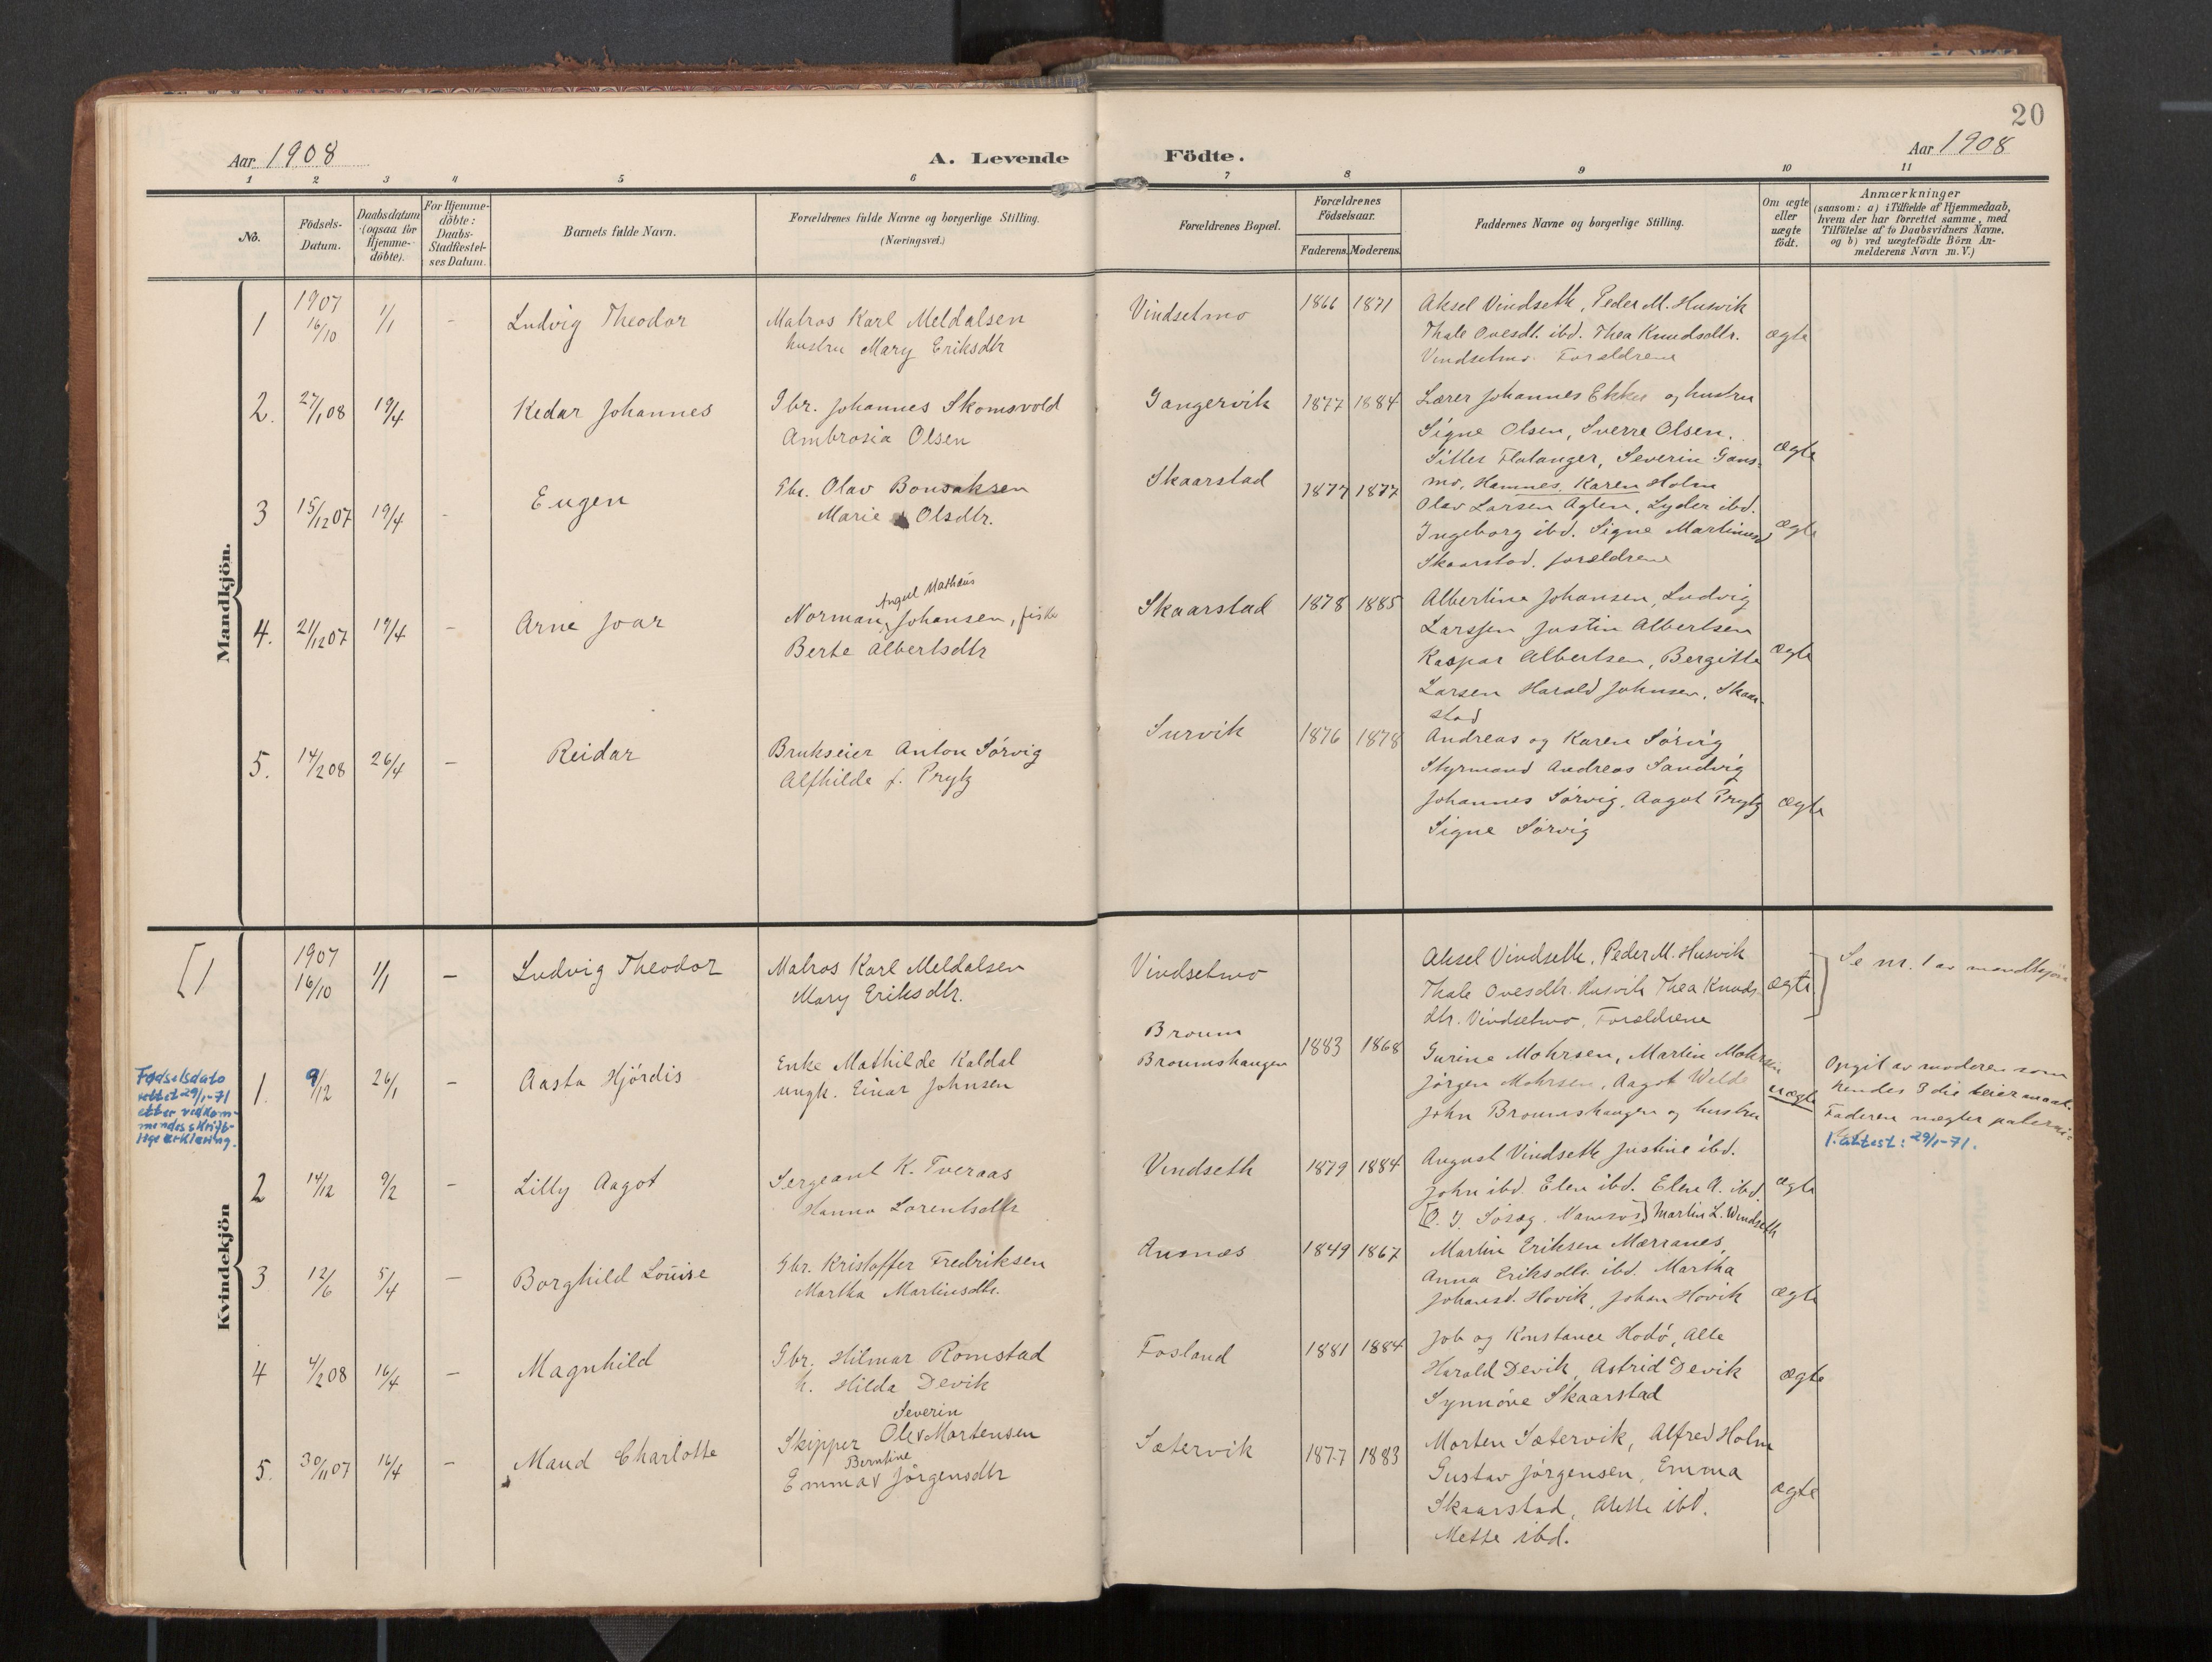 20
Aar 1908
A. Levende Födte.
Aar 1908
1 2 3 4 5 6 7 8 9 10 11
No.
Födsels-
Datum.
Daabsdatum
(ogsaa for
Hjemme-
döbte).
For Hjemme-
döbte:
Daabs-
Stadfæstel-
ses Datum.
Barnets fulde Navn.
Forældrenes fulde Navne og borgerlige Stilling.
(Næringsvei.)
Forældrenes Bopæl.
Forældrenes
Födselsaar.
Faderens. Moderens.
Faddernes Navne og borgerlige Stilling.
Om ægte
eller
uægte
födt.
Anmærkninger
(saasom: a) i Tilfælde af Hjemmedaab,
hvem der har forrettet samme, med
Tilföielse af to Daabsvidners Navne,
og b) ved uægtefödte Börn An-
melderens Navn m.V.)
Mandkjön.
1
1907
16/10
1/1
-
Ludvig Theodor
Matros Karl Meldalsen
hustru Mary Eriksdtr
Vindsetmo
1866 1871
Aksel Vindseth, Peder M. Husvik
Thale Ovesdt. ibd. Thea Knudsdtr.
Vindsetmo. Forældrene
ægte
2.
27/1 08
19/4
-
Kedar Johannes
Gbr. Johannes Skomsvold
Ambrosia Olsen
Gangervik
1877 1884
Lærer Johannes Ekker og hustru
Signe Olsen, Sverre Olsen.
Flatanger, Severin Gans-
mo, Hamnes, Karen Holm
ægte
3
15/12 07
19/4
-
Eugen
Gbr. Olav Bonsaksen
Marie Olsdtr.
Skaarstad
1877 1877
Olav Larsen Aglen, Lyder ibd.
Ingeborg ibd. Signe Martinusd
Skaarstad. forældrene
ægte
4.
21/12 07
19/4
-
Arne Joar
Angel Mathæus
Norman Johansen, fisker
Berte Albertsdtr
Skaarstad
1878 1885
Albertine Johansen, Ludvig
Larssen Justin Albertsen
Kaspar Albertsen, Bergitte
Larsen Harald Johnsen, Skaar-
stad
ægte
5.
14/2 08
26/4
-
Reidar
Brukseier Anton Sörvig
Alfhilde f. Prytz
Survik
1876 1878
Andreas og Karen Sörvig
Styrmand Andreas Sandvig
Johannes Sörvig, Aagot Prytz
Signe Sörvig
ægte
Kvindekjön
[1
1907
16/10
1/1
-
Ludvig Theodor
Matros Karl Meldalsen
Mary Eriksdtr.
Vindsetmo
Aksel Vindseth, Peder M. Husvik
Thale Ovesdtr. Husvik Thea Knuds-
dtr. Vindsetmo, Forældrene
ægte
Se nr. 1 av mandkjön
Fødselsdato
rettet 29/1-71
etter vedkom-
mendes skrift-
lige erklæring.
1.
9/12
26/1
-
Aasta Hjördis
Enke Mathilde Kaldal
ungk. Einar Johnsen
Broum
Broumshaugen
1883 1868
Gurine Mohrsen, Martin Mohrsen
Jörgen Mohrsen, Aagot Welde
John Broumshaugen og hustru
uægte
Opgit av moderen som
hendes 3die leiermaal.
Faderen nægter paterni-
1. attest: 29/1-71.
2
14/12
9/2
-
Lilly Aagot
Sergeant K. Tveraas
Hanna Lorentsdtr
Vindseth
1879 1884
August Vindseth Justine ibd.
John ibd. Elen ibd. Elen A. ibd.
[O. J. Namsos] Martin L. Windseth
ægte
3
12/6
5/4
-
Borghild Louise
Gbr. Kristoffer Fredriksen
Martha Martinsdtr.
Ausnæs
1849 1867
Martin Eriksen Mærranes,
Anna Eriksdtr. ibd. Martha
Johansd. Hovik, Johan Hovik
ægte
4
4/2 08
16/4
-
Magnhild
Gbr. Hilmar Romstad
h. Hilda Devik
Fosland
1881 1884
Job og Konstance Hodö, Alle
Harald Devik, Astrid Devik
Synnöve Skaarstad
ægte
5.
30/11 07
16/4
-
Maud Charlotte
Severin
Skipper Ole Martensen
Berntine
Emma Jörgensdtr
Sætervik
1877 1883
Morten Sætervik, Alfred Holm
Gustav Jörgensen, Emma
Skaarstad, Alette ibd.
Mette ibd.
ægte